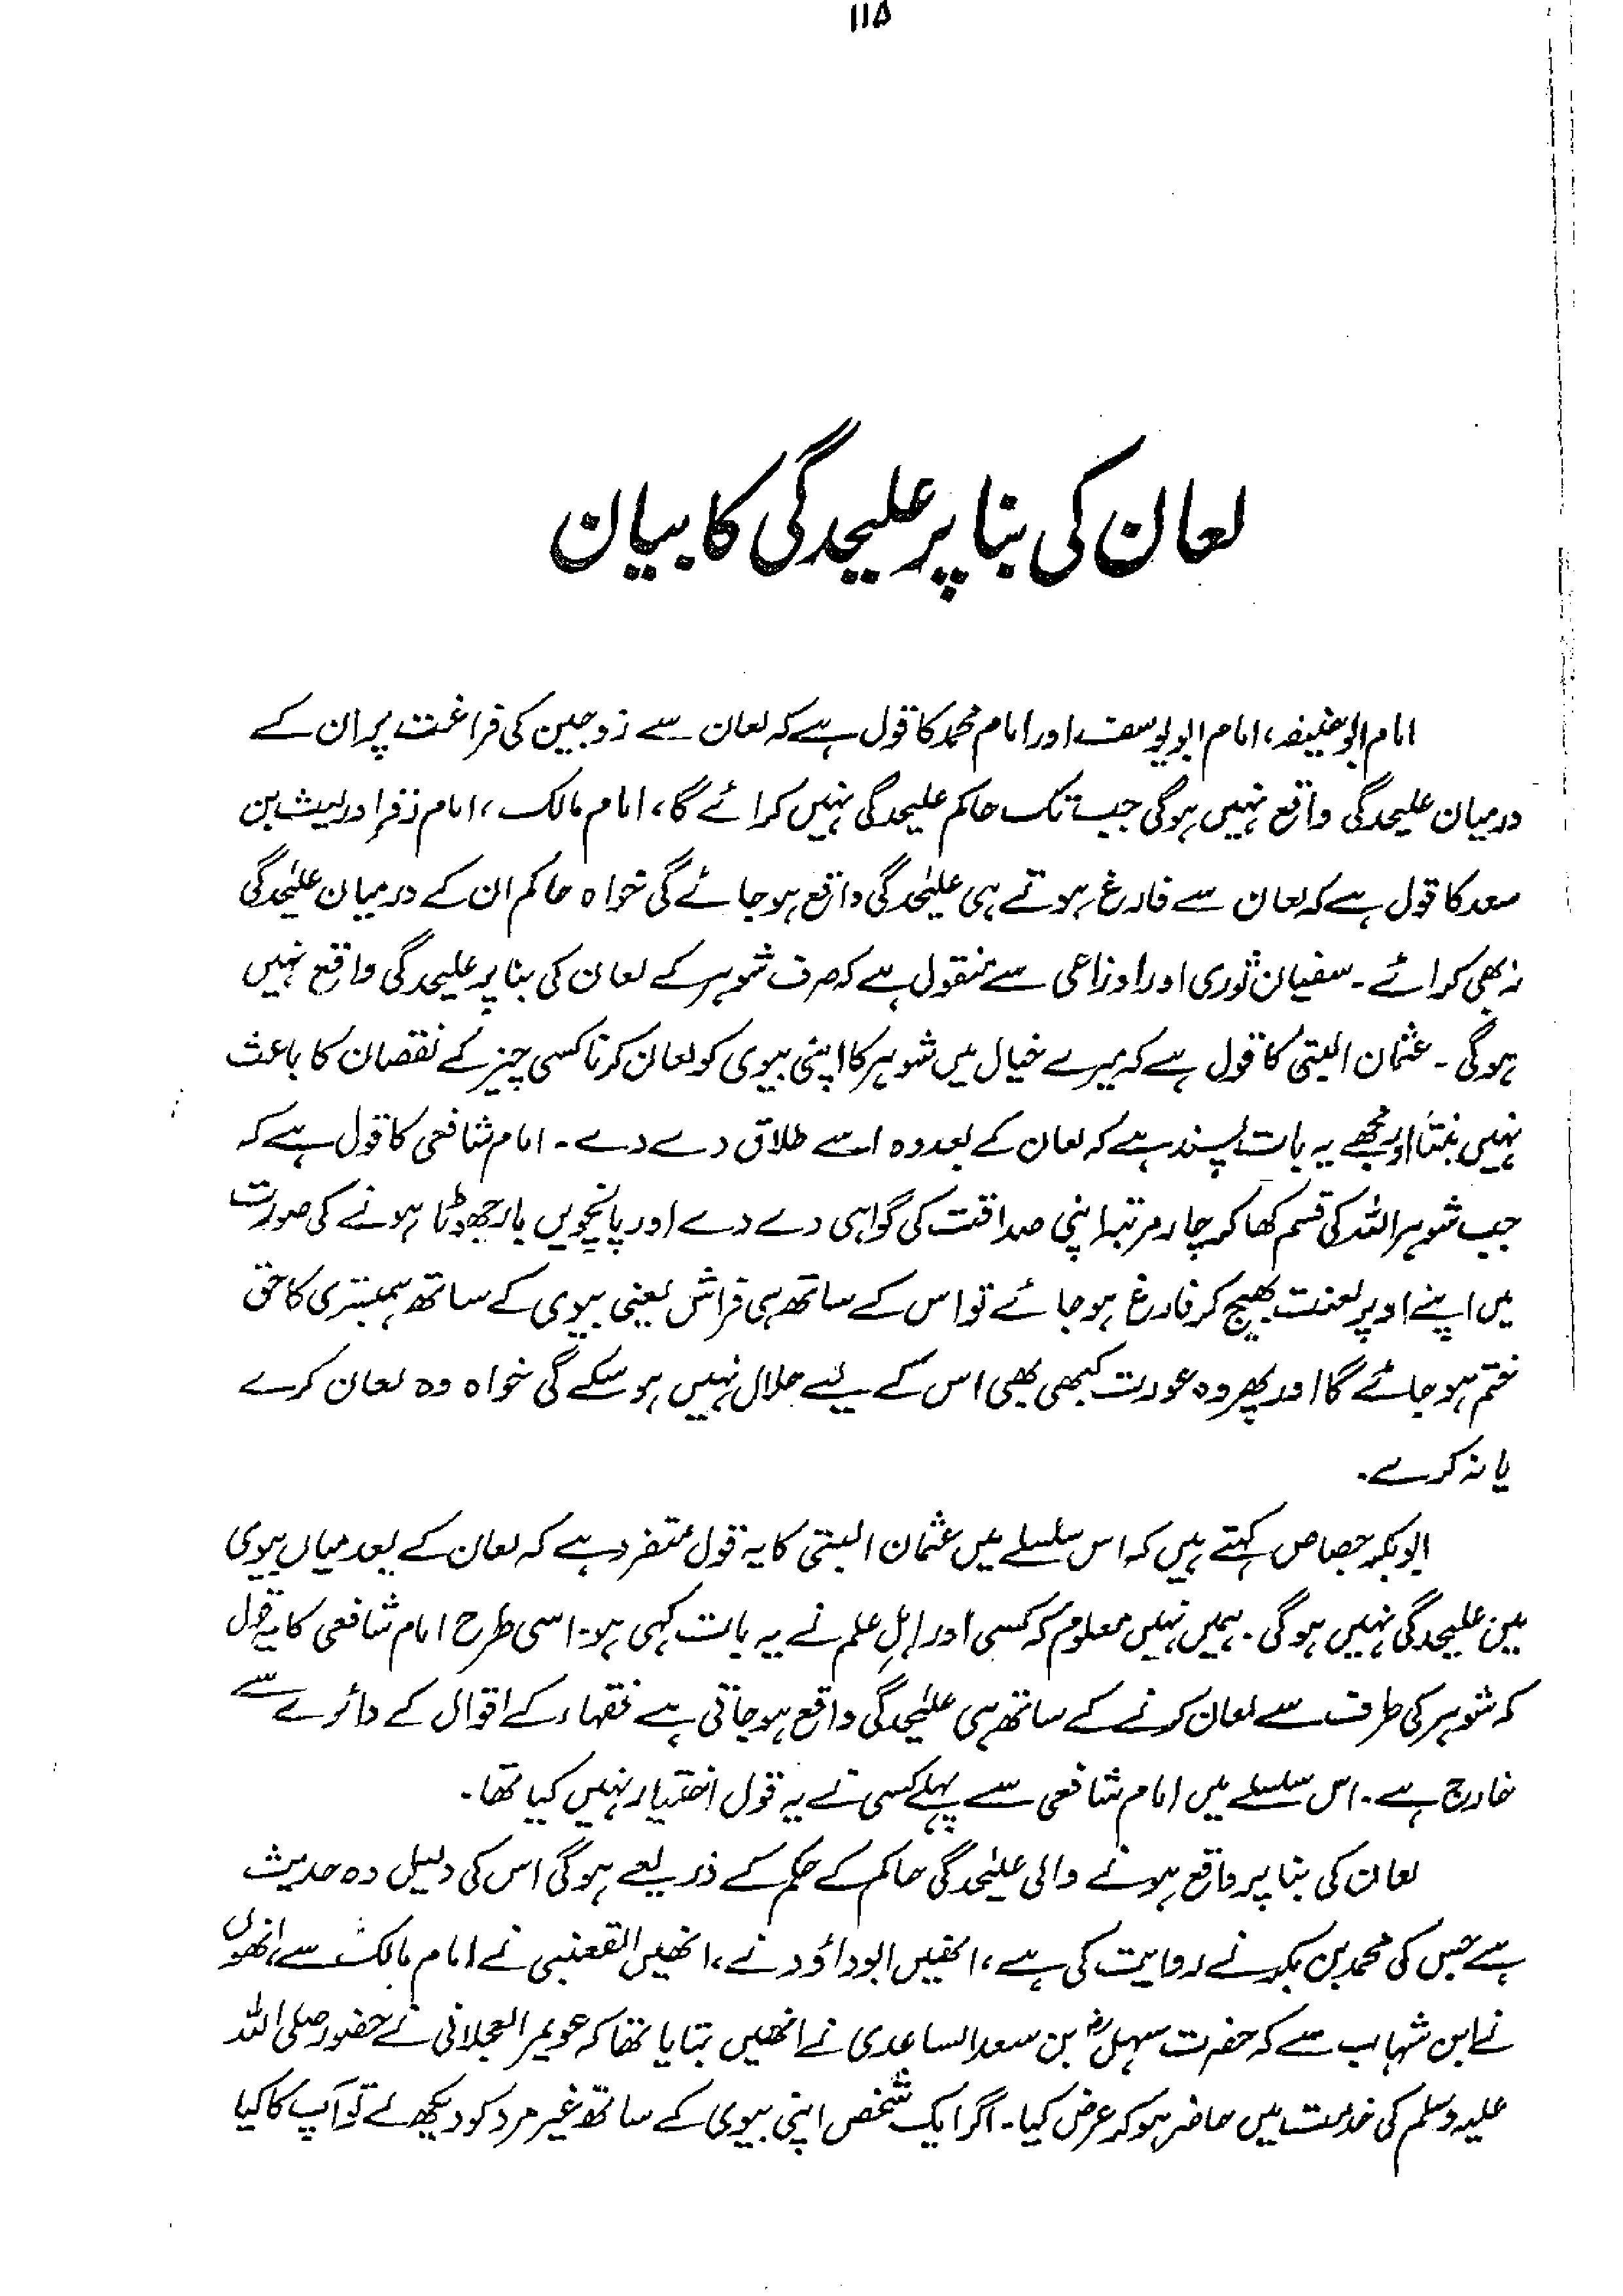 ۱۱۵
لعان کی بنا پر علیحدگی کا بیان
امام ابوحنیفہ، امام ابویوسف اور امام محمد کا قول ہے کہ لعان سے زوجین کی فراغت پر ان کے
درمیان علیحدگی واقع نہیں ہوگی جب تک حاکم علیحدگی نہیں کرائے گا، امام مالک، امام زفر اور لیث بن
سعد کا قول ہے کہ لعان سے فارغ ہوتے ہی علیٰحدگی واقع ہو جائے گی خواہ حاکم ان کے درمیان علیٰحدگی
نہ بھی کرائے۔ سفیان ثوری اور اوزاعی سے منقول ہے کہ صرف شوہر کے لعان کی بنا پر علیحدگی واقع نہیں
ہوگی۔ عثمان البتی کا قول ہے کہ میرے خیال میں شوہر کا اپنی بیوی کو لعان کرنا کسی چیز کے نقصان کا باعث
نہیں بنتا اور مجھے یہ بات پسند ہے کہ لعان کے بعد وہ اسے طلاق دے دے۔ امام شافعی کا قول ہے کہ
جب شوہر اللہ کی قسم کھا کر چار مرتبہ اپنی صداقت کی گواہی دے دے اور پانچویں بار جھوٹا ہونے کی صورت
میں اپنے اوپر لعنت بھیج کر فارغ ہو جائے تو اس کے ساتھ ہی فراش یعنی بیوی کے ساتھ ہمبستری کا حق
ختم ہو جائے گا اور پھر وہ عورت کبھی بھی اس کے لیے حلال نہیں ہو سکے گی خواہ وہ لعان کرے
یا نہ کرے۔
ابوبکر جصاص کہتے ہیں کہ اس سلسلے میں عثمان البتی کا یہ قول متفرد ہے کہ لعان کے بعد میاں بیوی
میں علیحدگی نہیں ہوگی۔ ہمیں نہیں معلوم کہ کسی اور اہلِ علم نے یہ بات کہی ہو۔ اسی طرح امام شافعی کا یہ قول
کہ شوہر کی طرف سے لعان کرنے کے ساتھ ہی علیٰحدگی واقع ہو جاتی ہے فقہاء کے اقوال کے دائرے سے
خارج ہے۔ اس سلسلے میں امام شافعی سے پہلے کسی نے یہ قول اختیار نہیں کیا تھا۔
لعان کی بنا پر واقع ہونے والی علیٰحدگی حاکم کے حکم کے ذریعے ہوگی اس کی دلیل وہ حدیث
ہے جس کی محمد بن بکر نے روایت کی ہے، انھیں ابو داؤد نے، انھیں القعنبی نے امام مالک سے، انھوں
نے ابن شہاب سے کہ حضرت سہلؓ بن سعد الساعدی نے انھیں بتایا تھا کہ عویمر العجلانی نے حضور صلی اللہ
علیہ وسلم کی خدمت میں حاضر ہو کر عرض کیا۔ اگر ایک شخص اپنی بیوی کے ساتھ غیر مرد کو دیکھ لے تو آپ کا کیا